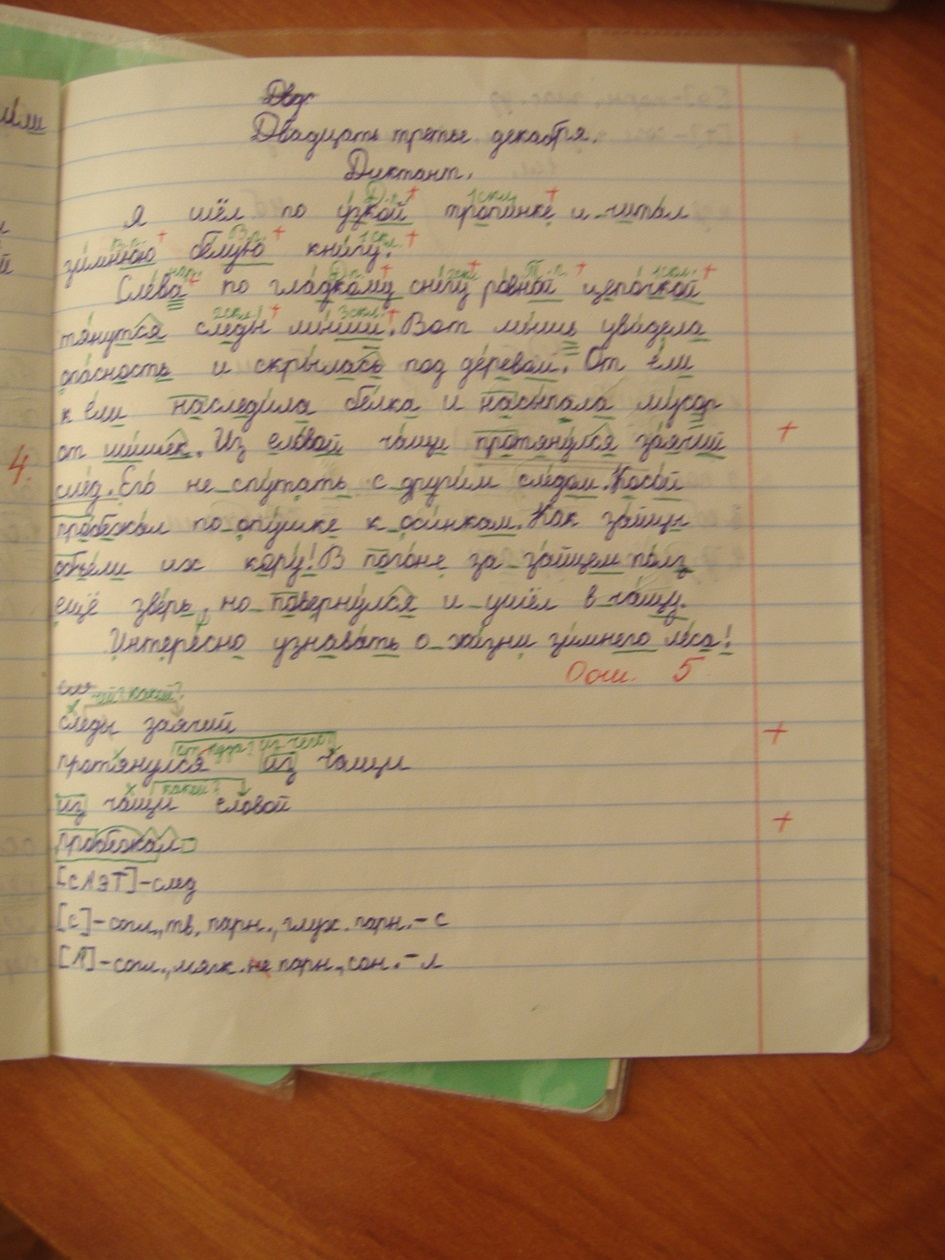 Двадцать третье декабря.
Диктант.
Я шёл по узкой тропинке и читал
зимнюю белую книгу.
Слева по гладкому снегу ровной цепочкой
тянутся следы мыши. Вот мышь увидела
опасность и скрылась под деревом. От ели
к ели наследила белка и насыпала мусор
от шишек. Из еловой чащи протянулся заячий
след. Его не спутать с другим следом. Косой
пробежал по опушке к осинкам. Как зайцы
объели их кору! В погоне за зайцем полз
ещё зверь, но повернулся и ушёл в чащу.
Интересно узнавать о жизни зимнего леса!
0 ош. 5
4.
чей? какой?
следы заячий
откуда? из чего?
протянулся из чащи
какой?
из чащи еловой
пробежал
[сЛэТ]-след
[с]-согл., тв. парн., глух. парн.-с
[Л]-согл., мягк. не парн., сон.-л